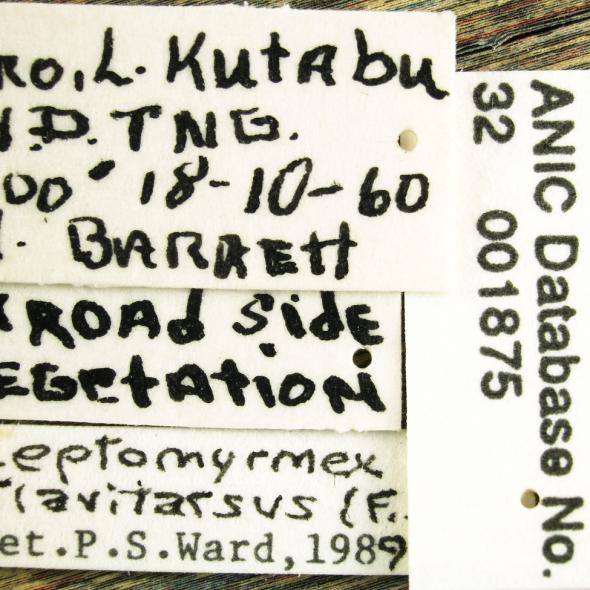 ro, L. Kutabu
H.D. TNG.
00' 18-10-60
. BARRETT
ROAD SIDE
EGETATION
eptomyrmex
flavitarsus (F.
et.P.S.Ward,1989
ANIC Database No.
32 001875